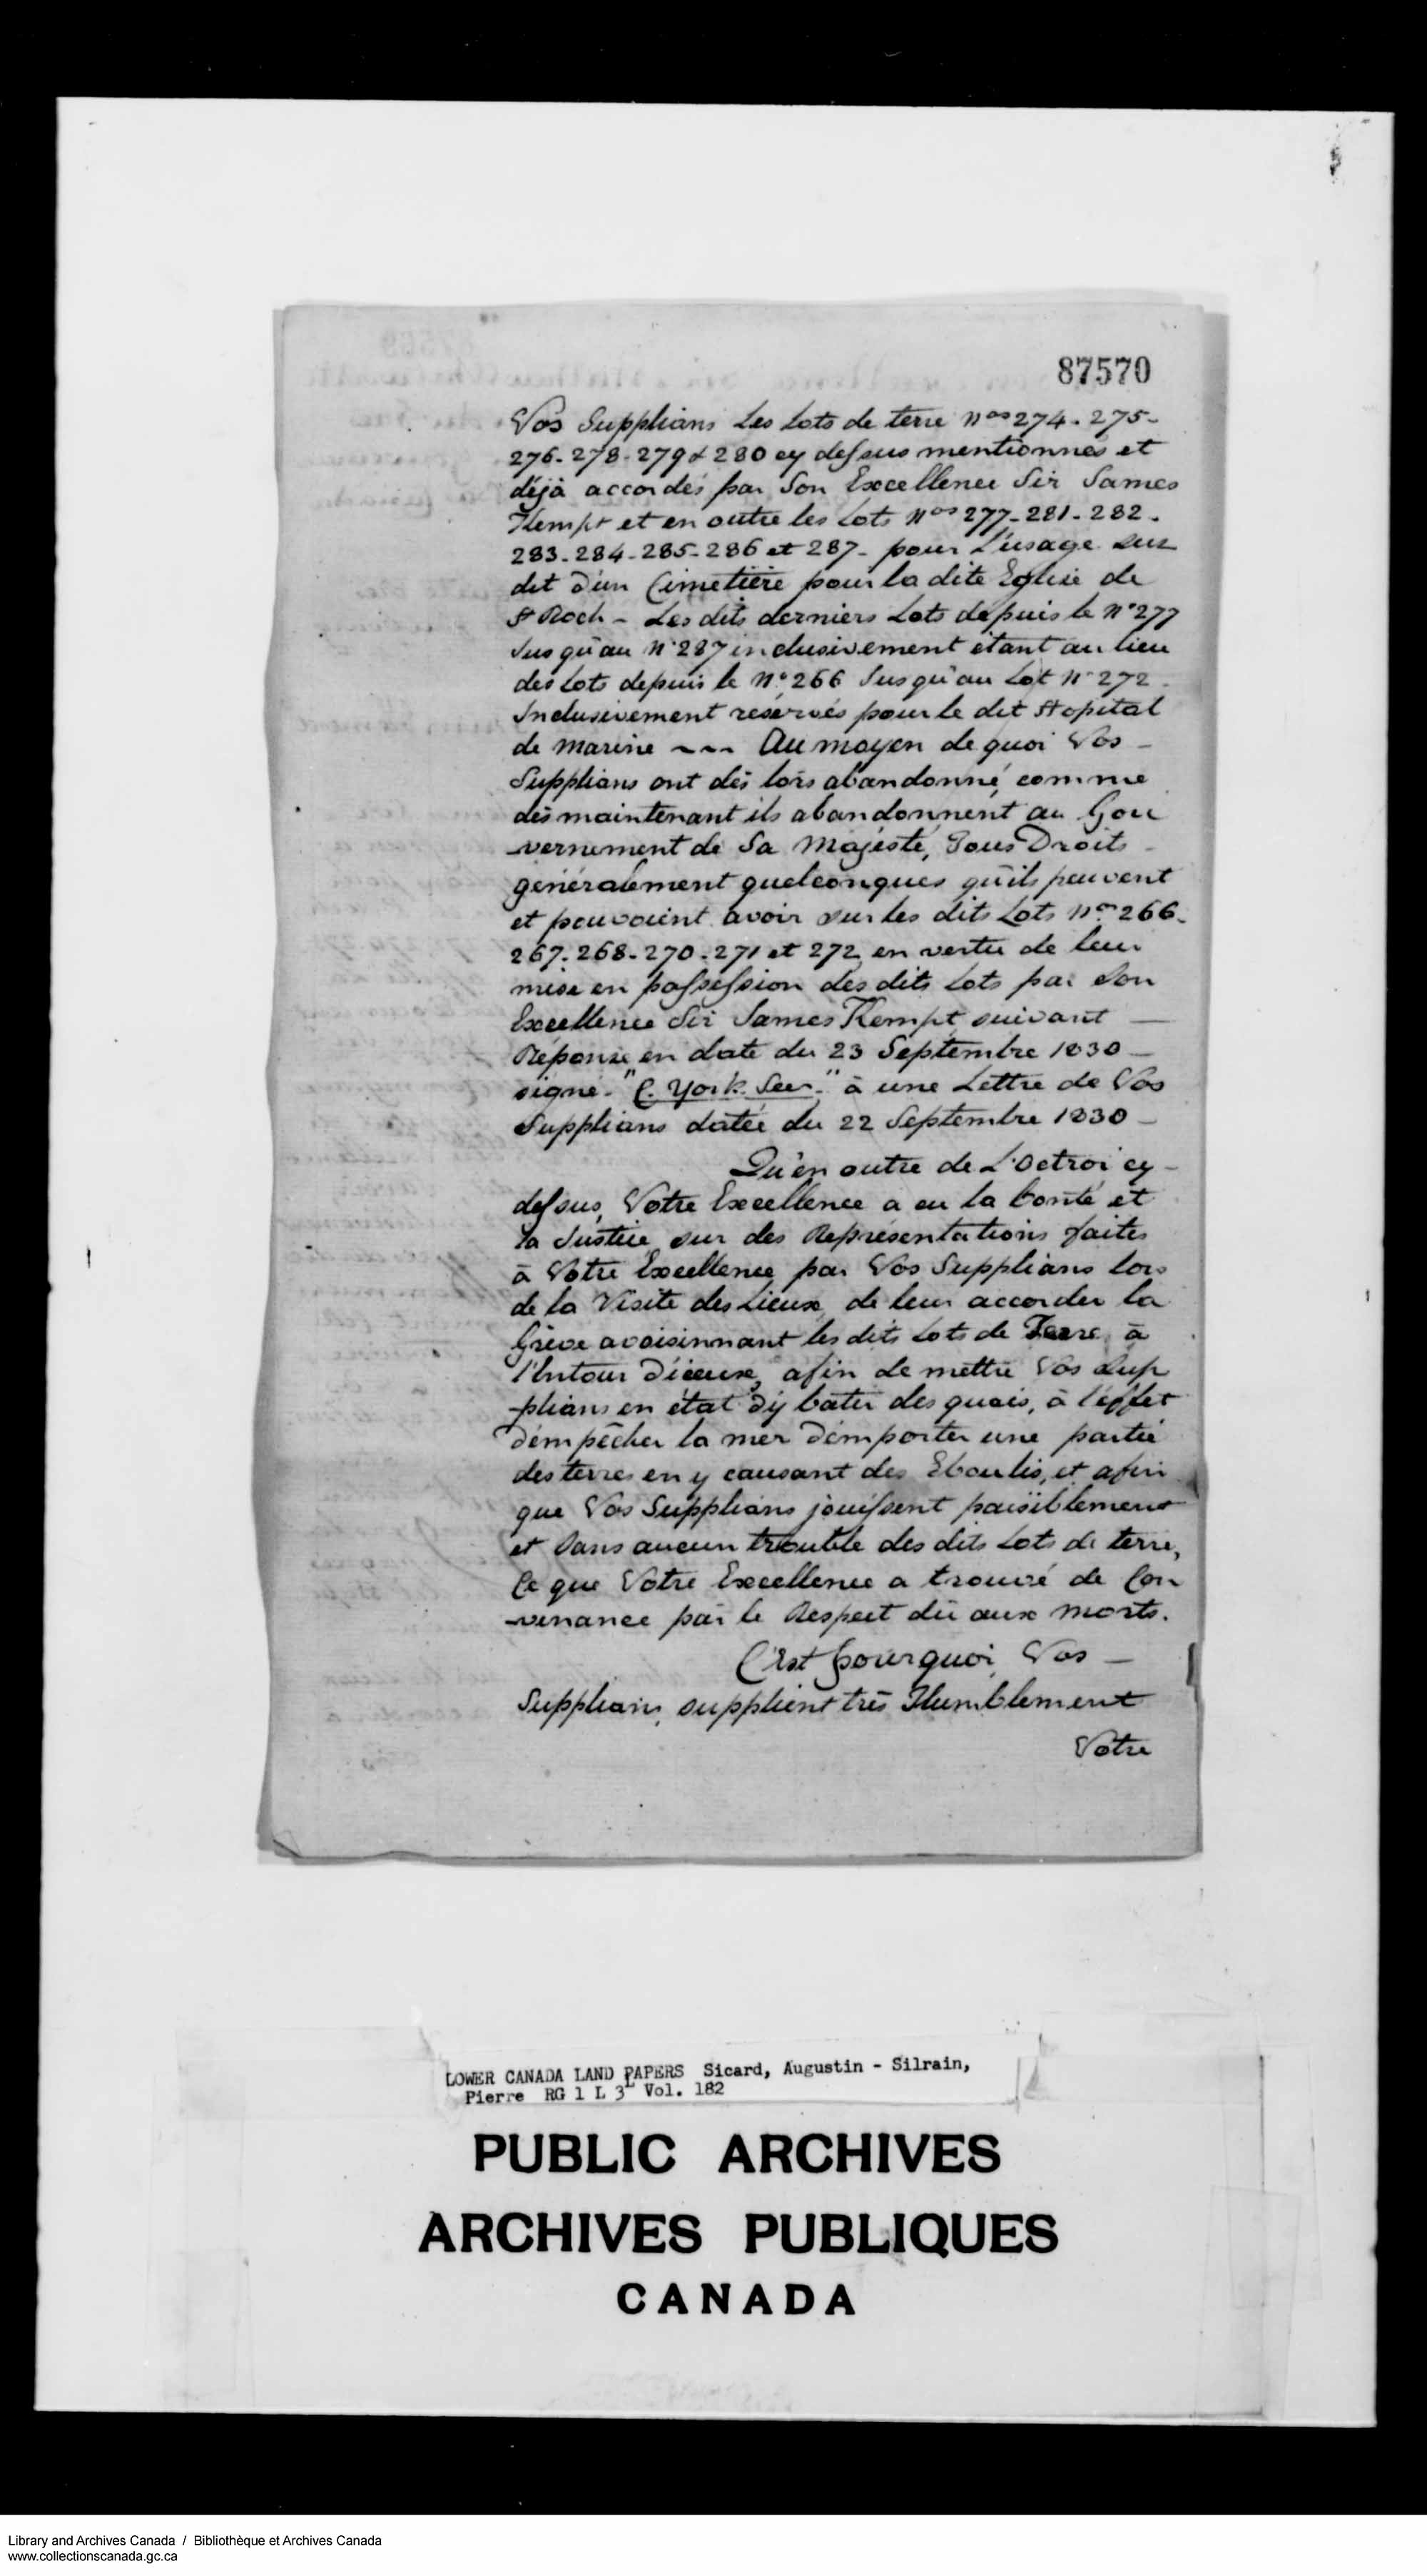 87570
Vos Supplians Les Lots de terre Nos 274. 275-
276. 278. 279 & 280 cy dessus mentionnés et
déjà accordés par Son Excellence Sir James
Kempt et en outre les Lots Nos 277- 281- 282-
283- 284- 285- 286 et 287- pour l'usage sus
dit d'un Cimetière pour la dite Eglise de
St Roch - Les dits derniers Lots depuis le No 277
Jusqu'au No 287 inclusivement étant au lieu
des Lots depuis le No 266 Jusqu'au Lot No 272
Inclusivement réservés pour le dit Hopital
de marine ~~~ Au moyen de quoi Vos -
Supplians ont dès lors abandonné, comme
dès maintenant ils abandonnent au Gou
-vernement de Sa Majesté, Tous Droits -
généralement quelconques qu'ils peuvent
et pouvoient avoir sur les dits Lots Nos 266-
267- 268- 270- 271 et 272 en vertu de leur
mise en possession des dits Lots par Son
Excellence Sir James Kempt suivant —
Réponse en date du 23 Septembre 1830 —
signé- "C. York Secr." à une Lettre de Vos
Supplians datée du 22 Septembre 1830 —
Qu'en outre de L'Octroi cy-
dessus, Votre Excellence a eu la bonté et
la Justice sur des Représentations faites
à Votre Excellence par Vos Supplians lors
de la Visite des Lieux, de leur accorder la
Grève avoisinnant les dits Lots de Terre, à
l'Entour D'iceux, afin de mettre Vos Sup
-plians en état D'y bâtir des quais, à l'effet
D'empêcher la mer D'emporter une partie
des terres en y causant des Eboulis, et afin
que Vos Supplians jouissent paisiblement
et Sans aucun trouble des dits Lots de terre,
Ce que Votre Excellence a trouvé de Con
-venance par le Respect dû aux morts.
C'Est pourquoi Vos —
Supplians, supplient très Humblement
Votre
LOWER CANADA LAND PAPERS Sicard, Augustin - Silrain,
Pierre RG 1 L 3L Vol. 182
PUBLIC ARCHIVES
ARCHIVES PUBLIQUES
CANADA
Library and Archives Canada / Bibliothèque et Archives Canada
www.collectionscanada.gc.ca